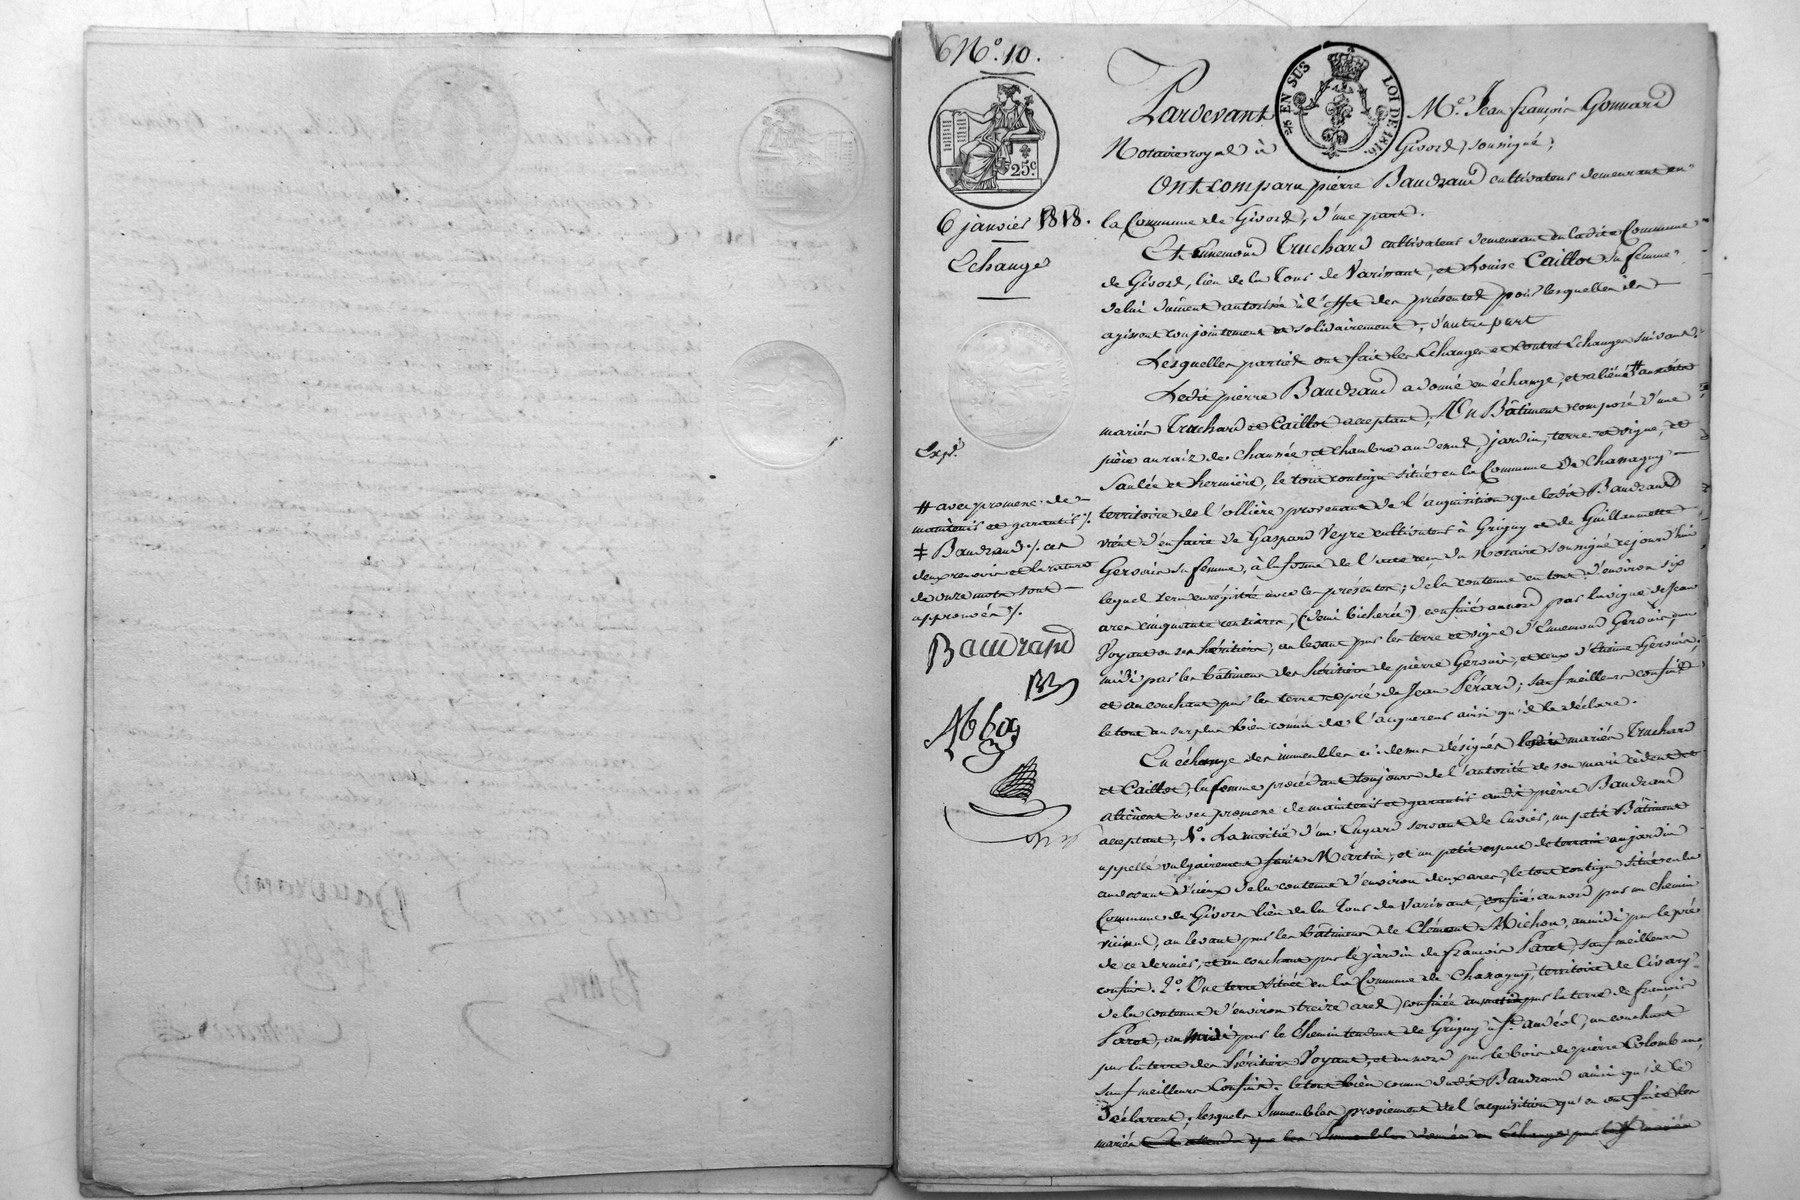 6 N.° 10.
25 EN SUS LOI DE 1816.
25 c.
6 janvier 1818.
Echange
Exp.
# avec promesse de
maintenir et garantir ./.
‡ Baudrand ./. ces
deux renvois et la rature
de onze mots sont
approuvés ./.
Baudrand
Pardevant M.e Jean françois Gonnard
Notaire royal à Givord, soussigné,
Ont comparu pierre Baudrand cultivateur demeurant en
la Commune de Givord, d'une part.
Et Ennemond Truchard cultivateur demeurant en ladite Commune
de Givord, lieu de la Tour de Varissant, et Louise Caillot sa femme
de lui dûment autorisée à l'effet des présentes pour lesquelles ils
agissent conjointement et solidairement, d'autre part
Lesquelles parties ont fait les Echanges et contre Echanges suivants.
Ledit pierre Baudrand a donné en échange, et aliéné # auxdits
mariés Truchard et Caillot acceptant, Un Bâtiment composé d'une
pièce au raiz de chaussée et chambre au dessus, jardin, terre et vigne, et
Saulée et hermière, le tout contigu situé en la Commune de Chassagny
territoire de l'ollière provenant de l'acquisition que ledit Baudrand
vient d'en faire de Gaspard Veyre cultivateur à Grigny et de Guillaumette
Gervais sa femme, à la forme de l'acte reçu du Notaire soussigné cejourd'hui
lequel sera enregistré avec les présentes; de la contenue en tout d'environ six
ares cinquante centiares, (demi bicherée), confiné au nord par la vigne de Jean
Voyant ou ses héritiers, au levant par les terre et vigne d'Ennemond Gervais, au
midi par les bâtimens des héritiers de pierre Gervais, et ceux d'Etienne Gervais,
et au couchant par les terre et pré de Jean Pérard; sauf meilleurs confins
le tout au surplus bien connu de l'acquereur ainsi qu'il le déclare.
En échange des immeubles ci-dessus désignés lesdits mariés Truchard
et Caillot, la femme procédant toujours de l'autorité de son mari cèdent et
aliènent avec promesse de maintenir et garantir audit pierre Baudrand
acceptant, 1.° La moitié d'un Cuvard servant de Cuvier, un petit Bâtiment
appellé vulgairement font Martin, et un petit espace de terrain au jardin
au devant d'iceux de la contenue d'environ deux ares, le tout contigu situé en la
Commune de Givors lieu de la Tour de Varissant, confiné au nord par un chemin
vicinal, au levant par les bâtimens de Clément Michon, au midi par le pré
de ce dernier, et au couchant par le jardin de françois Parot, sauf meilleurs
confins. 2.° Une terre située en la Commune de Chassagny, territoire de Civary
de la contenue d'environ treize ares, confinée au matin par la terre de françois
Parot, au midi par le Chemin tendant de Grigny à S.t andéol, au couchant
par la terre des héritiers Voyant, et au nord par le bois de pierre Colomb
sauf meilleurs Confins. le tout bien connu dudit Baudrand ainsi qu'il le
déclarent; lesquels Immeubles proviennent de l'acquisition qu'en ont faite les
mariés